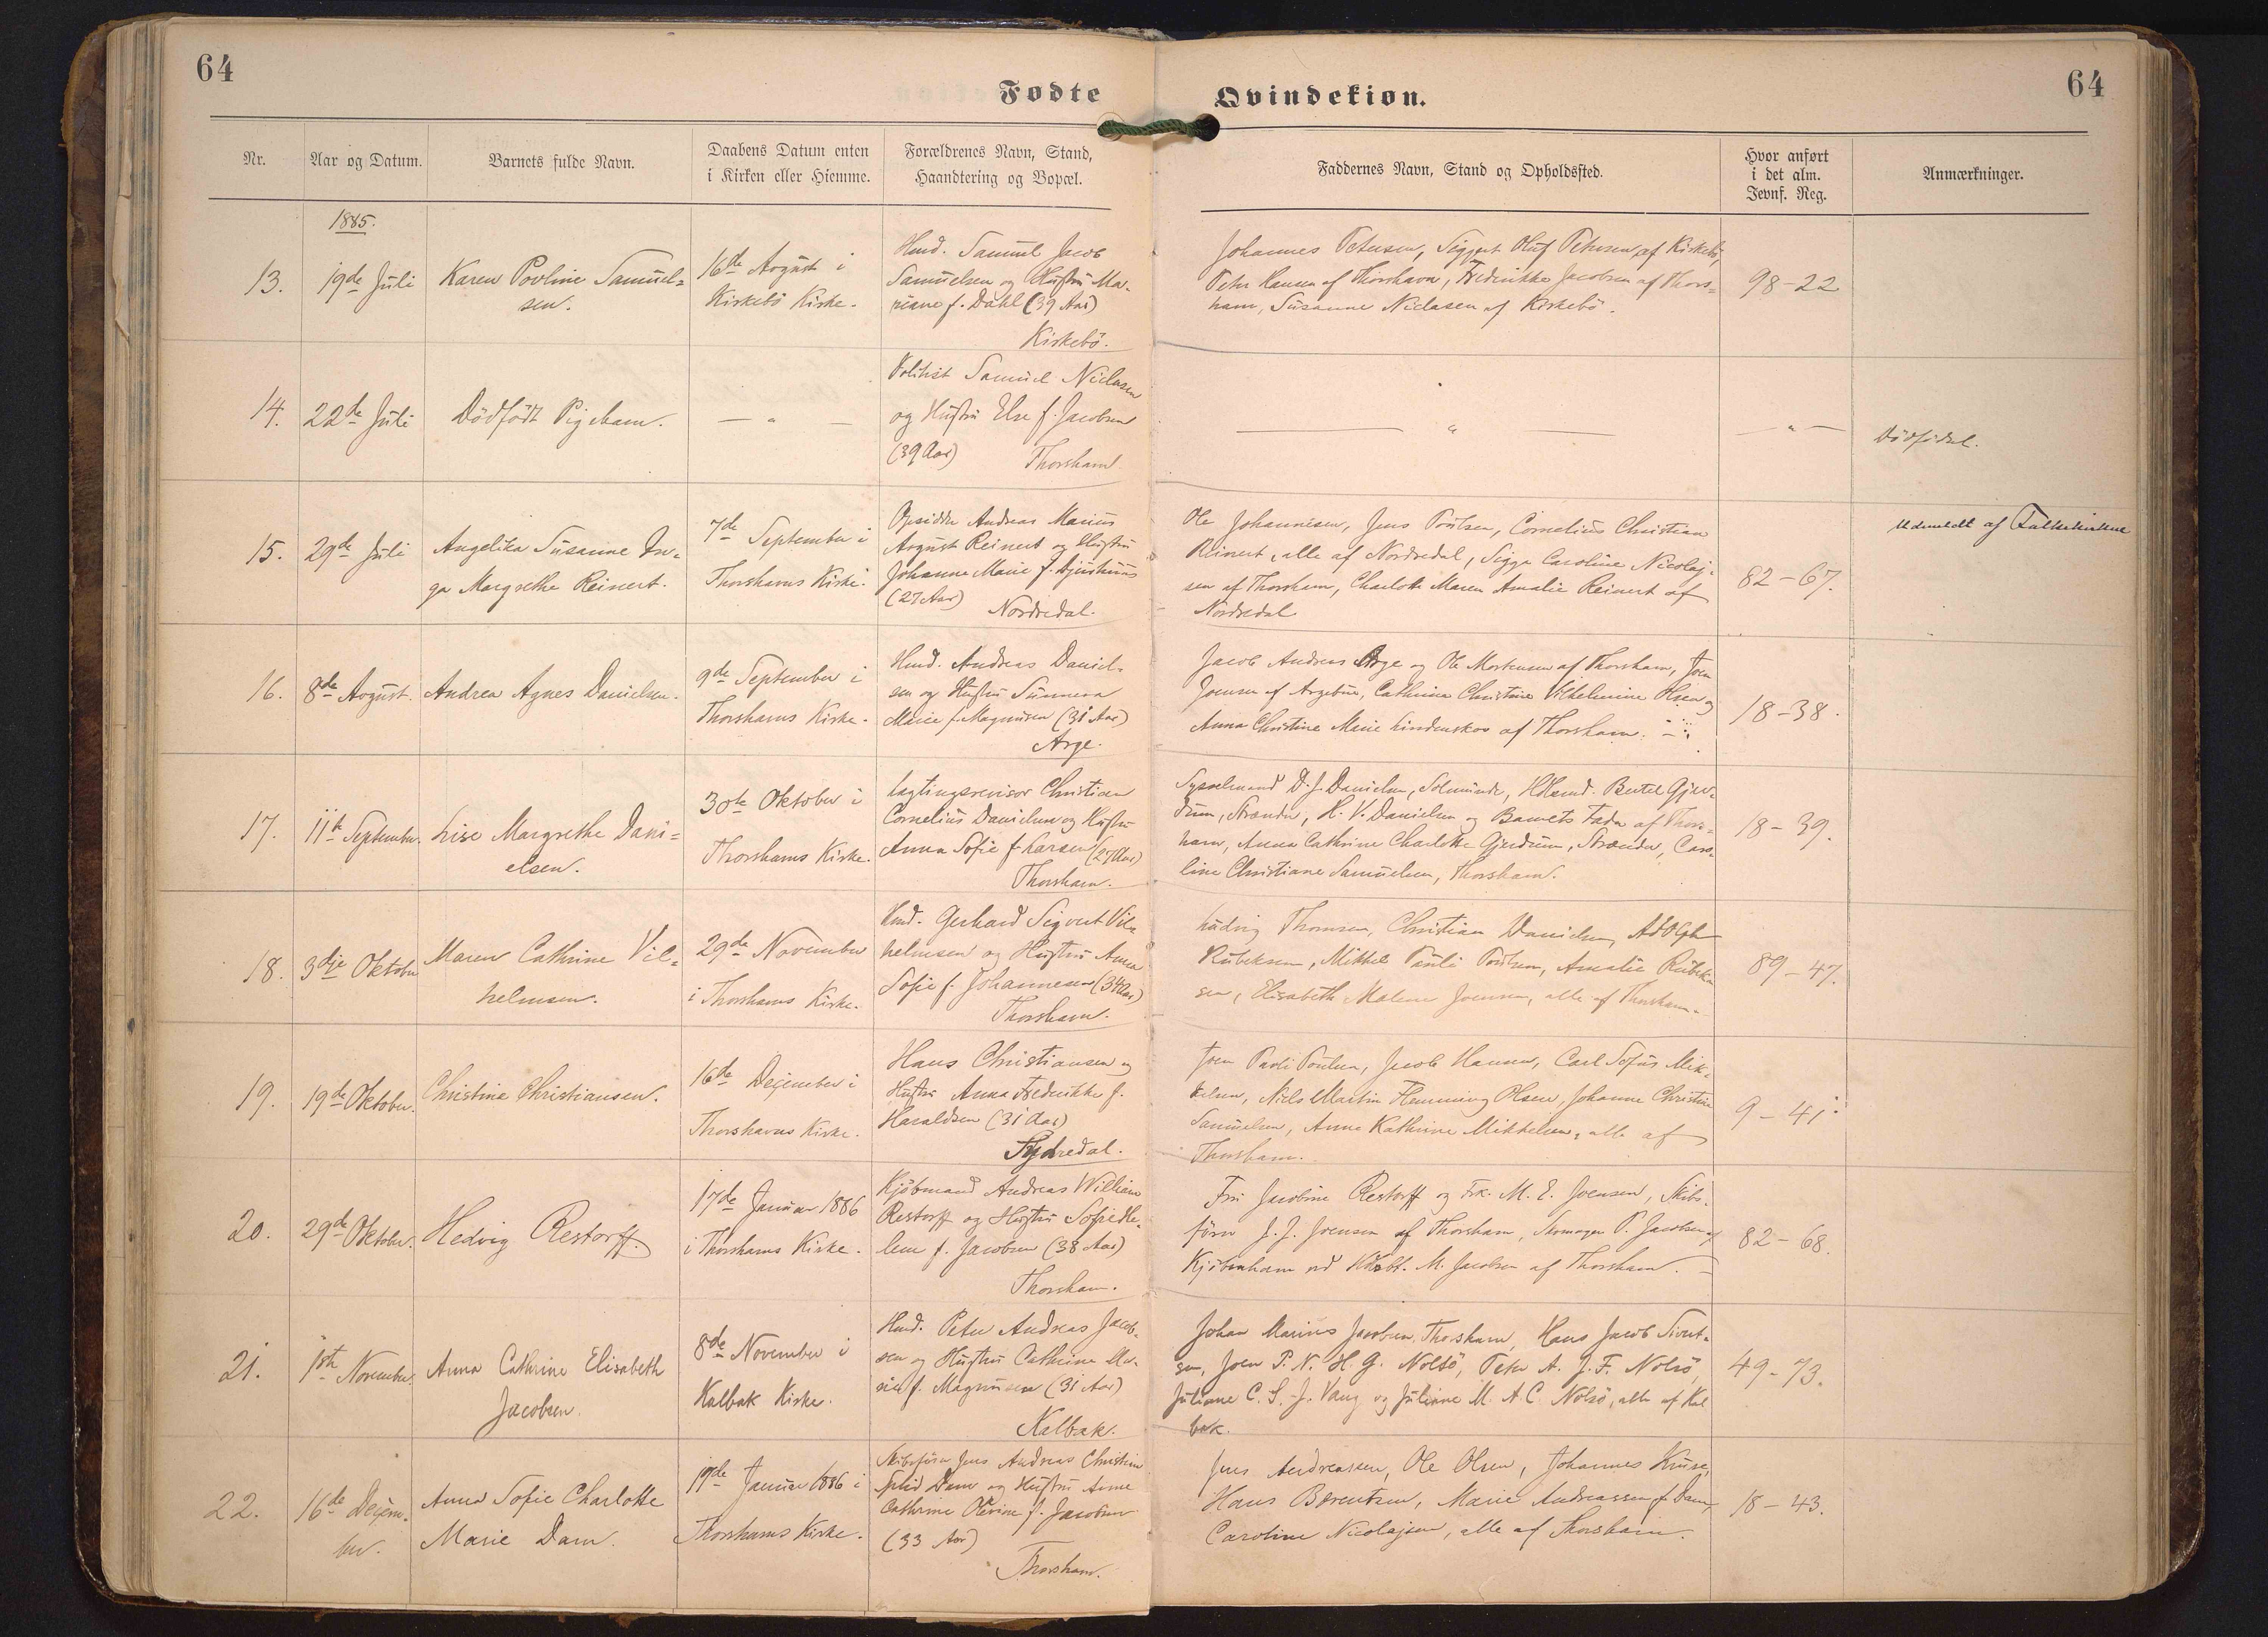 64
64
Fødte
Qvindekiøn.
Nr.
Aar og Datum.
Barnets fulde Navn.
Daabens Datum enten
i Kirken eller Hiemme.
Forældrenes Navn, Stand,
Haandtering og Bopæl.
Faddernes Navn, Stand og Opholdssted.
Hvor anført
i det alm.
Jevnf. Reg.
Anmærkninger.
1885.
13.
19de Juli
Karen Povline Samuel=
sen.
16de August i
Kirkebö Kirke.
Hmd. Samuel Jacob
Samuelsen og Hustru Ma-
riane f. Dahl (39 Aar)
Kirkebö.
Johannes Petersen, Sigget Oluf Petersen af Kirkebö,
Peter Hansen af Thorshavn, Frederikke Jacobsen af Thors=
havn, Susanne Niclasen af Kirkebö.
98-22
14.
22de Juli
Dödfödt Pigebarn.
— " —
Politist Samuel Niclasen
og Hustru Else f. Jacobsen
(39 Aar)
Thorshavn.
— " —
— " —
Dödfödt.
15.
29de Juli
Angelika Susanne In=
ga Margrethe Reinert.
7de September i
Thorshavns Kirke.
Opsidder Andreas Marius
August Reinert og Hustru
Johanne Marie f. Djurhuus
(27 Aar)
Nordredal.
Ole Johannesen, Jens Poulsen, Cornelius Christian
Reinert, alle af Nordredal, Sigga Caroline Nicolaj-
sen af Thorshavn, Charlotte Maren Amalie Reinert af
Nordredal
82-67.
Udmeldt af Folkekirken
16.
8de August.
Andrea Agnes Danielsen.
9de September i
Thorshavns Kirke.
Hmd. Andreas Daniel-
sen og Hustru Sunneva
Marie f. Magnusen (31 Aar)
Arge.
Jacob Andreas Arge og Ole Mortensen af Thorshavn, Joen
Joensen af Argebue, Cathrina Christine Vilhelmine Olsen og
Anna Christine Marie Lindenskov af Thorshavn.
18-38.
17.
11te September.
Lise Margrethe Dani=
elsen.
30te Oktober i
Thorshavns Kirke.
Lagtingsrevisor Christian
Cornelius Danielsen og Hustru
Anna Sofie f. Larsen (27 Aar)
Thorshavn.
Sysselmand D. J. Danielsen, Solmunde, Hdlsmd. Bertel Gjer-
drum, Strænder, H. V. Danielsen og Barnets Fader af Thors=
havn, Anna Cathrine Charlotte Gjerdrum, Strænder, Caro-
line Christiane Samuelsen, Thorshavn.
18-39.
18.
3dje Oktober
Maren Cathrine Vil=
helmsen.
29de November
i Thorshavns Kirke.
Hmd. Gerhard Sigvert Vil=
helmsen og Hustru Anna
Sofie f. Johannesen (34 Aar)
Thorshavn.
Ludvig Thomsen, Christian Danielsen, Adolph
Rubeksen, Mikkel Pauli Poulsen, Amalie Rubek-
sen, Elisabeth Malene Joensen, alle af Thorshavn.
89-47.
19.
19de Oktober.
Christine Christiansen.
16de December i
Thorshavns Kirke.
Hans Christiansen og
Hustru Anna Frederikke f.
Haraldsen (31 Aar)
Sydredal.
Joen Pauli Poulsen, Jacob Hansen, Carl Sofus Mik-
kelsen, Niels Martin Flemming Olsen, Johanne Christine
Samuelsen, Anna Kathrine Mikkelsen, alle af
Thorshavn.
9-41.
20.
29de Oktober.
Hedvig Restorff.
17de Januar 1886
i Thorshavns Kirke.
Kjöbmand Andreas William
Restorff og Hustru Sofie He-
lene f. Jacobsen (38 Aar)
Thorshavn.
Fru Jacobine Restorff og Frk. M. E. Joensen, Skibs-
förer J. J. Joensen af Thorshavn, Skomager P. Jacobsen af
Kjöbenhavn ved M. Jacobsen af Thorshavn.
82-68.
21.
1ste November.
Anna Cathrine Elisabeth
Jacobsen.
8de November i
Kalbak Kirke.
Hmd. Peter Andreas Jacob-
sen og Hustru Cathrine Ma-
rie f. Magnusen (31 Aar)
Kalbak.
Johan Marius Jacobsen, Thorshavn, Hans Jacob Sivert-
sen, Joen P. N. H. G. Nolsö, Peter A. J. F. Nolsö,
Juliane C. S. J. Vang og Juliane M. A. C. Nolsö, alle af Kal
bak.
49-73.
22.
16de Decem-
ber.
Anna Sofie Charlotte
Marie Dam.
17de Januar 1886 i
Thorshavns Kirke.
Skibsförer Jens Andreas Christian
Dam og Hustru Anne
Cathrine Olevine f. Jacobsen
(33 Aar)
Thorshavn.
Jens Andreassen, Ole Olsen, Johannes Kruse,
Hans Berentsen, Marie Andreassen f. Dam,
Caroline Nicolajsen, alle af Thorshavn.
18-43.